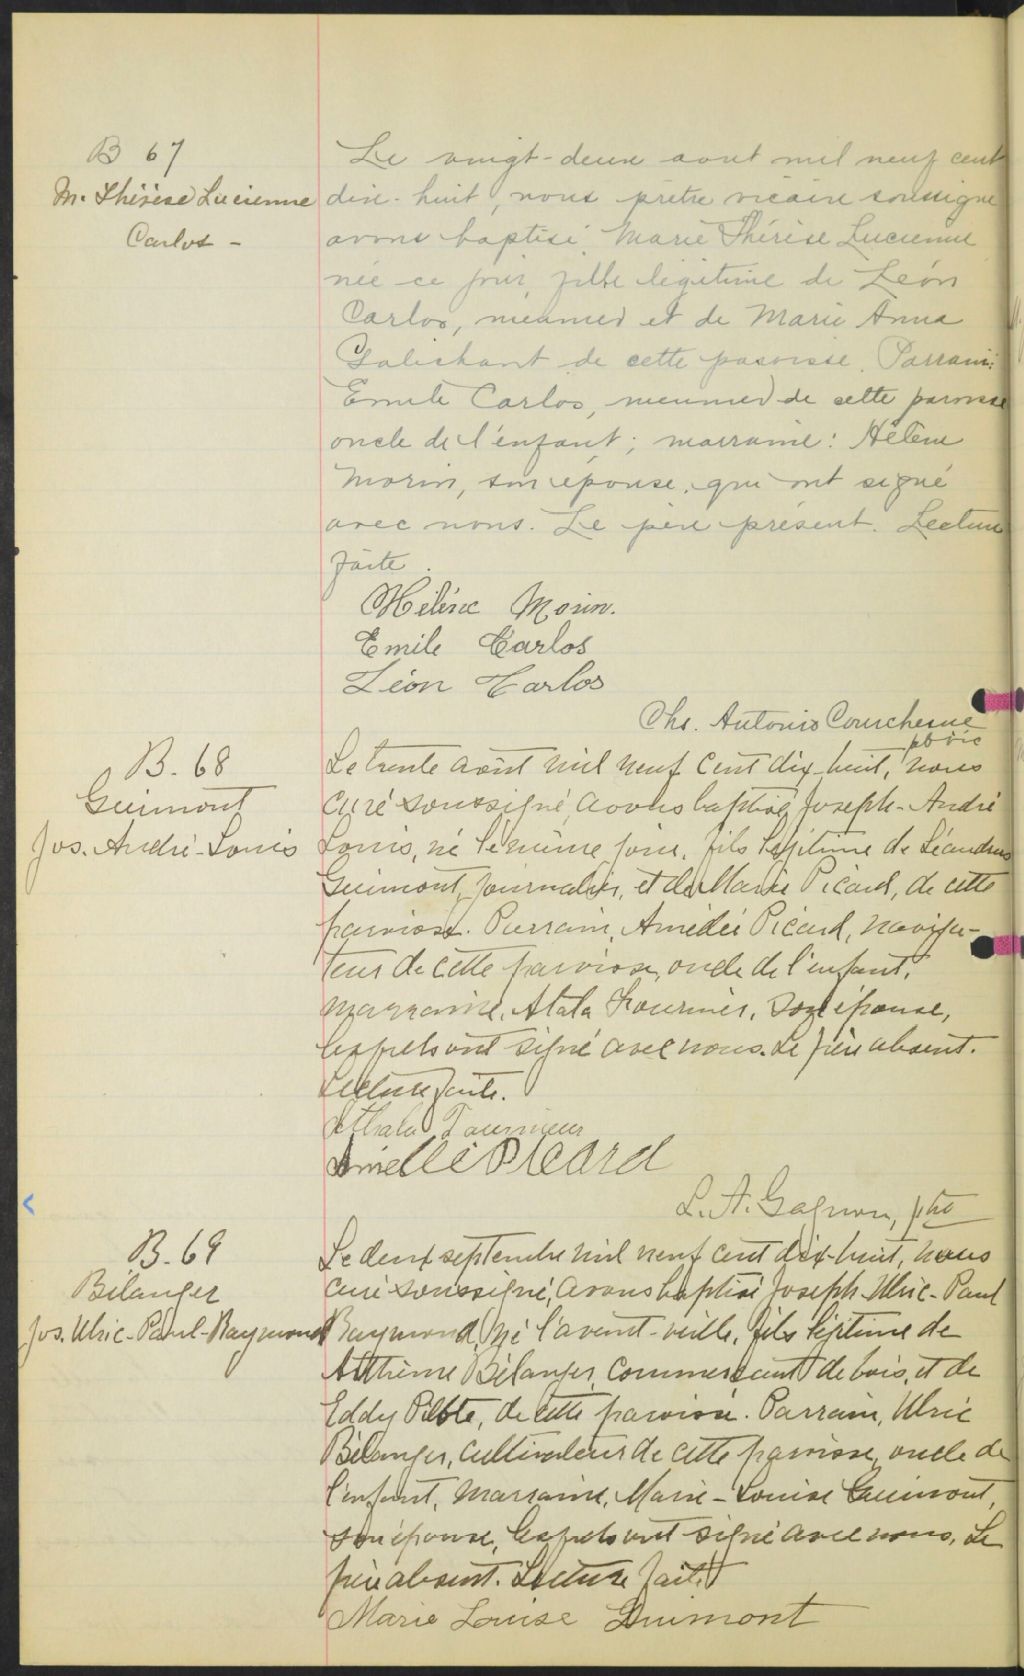 B 67
M. Thérèse Lucienne
Carlos -
Le vingt-deux aout mil neuf cent
dix-huit, nous prêtre vicaire soussigné
avons baptisé Marie Thérèse Lucienne
née ce jour, fille légitime de Léon
Carlos, meunier et de Marie Anna
Galichant de cette paroisse. Parrain:
Emile Carlos, meunier de cette paroisse
oncle de l'enfant; marraine: Hélène
Morin, son épouse, qui ont signé
avec nous. Le père présent. Lecture
faite.
Hélène Morin.
Emile Carlos
Léon Carlos
Chs. Antonio Courchesne
ptre vic
B. 68
Guimont
Jos. André-Louis
Le trente août mil neuf cent dix-huit, nous
curé soussigné, avons baptisé Joseph-André
Louis, né le même jour, fils légitime de Léandre
Guimont, journalier, et de Marie Picard, de cette
paroisse. Parrain, Amédée Picard, naviga-
teur de cette paroisse, oncle de l'enfant,
marraine, Atala Fournier, son épouse,
lesquels ont signé avec nous. Le père absent.
Lecture faite.
Athala Fournier
Amédé Picard
L. A. Gagnon, ptre
B. 69
Bélanger
Jos. Ulric-Paul-Raymond
Le deux septembre mil neuf cent dix-huit, nous
curé soussigné, avons baptisé Joseph-Ulric-Paul
Raymond, né l'avant-veille, fils légitime de
Anthime Bélanger, commerçant de bois, et de
Eddy Pelote, de cette paroisse. Parrain, Ulric
Bélanger, cultivateur de cette paroisse, oncle de
l'enfant, marraine, Marie-Louise Guimont,
son épouse, lesquels ont signé avec nous. Le
père absent. Lecture faite.
Marie Louise Guimont